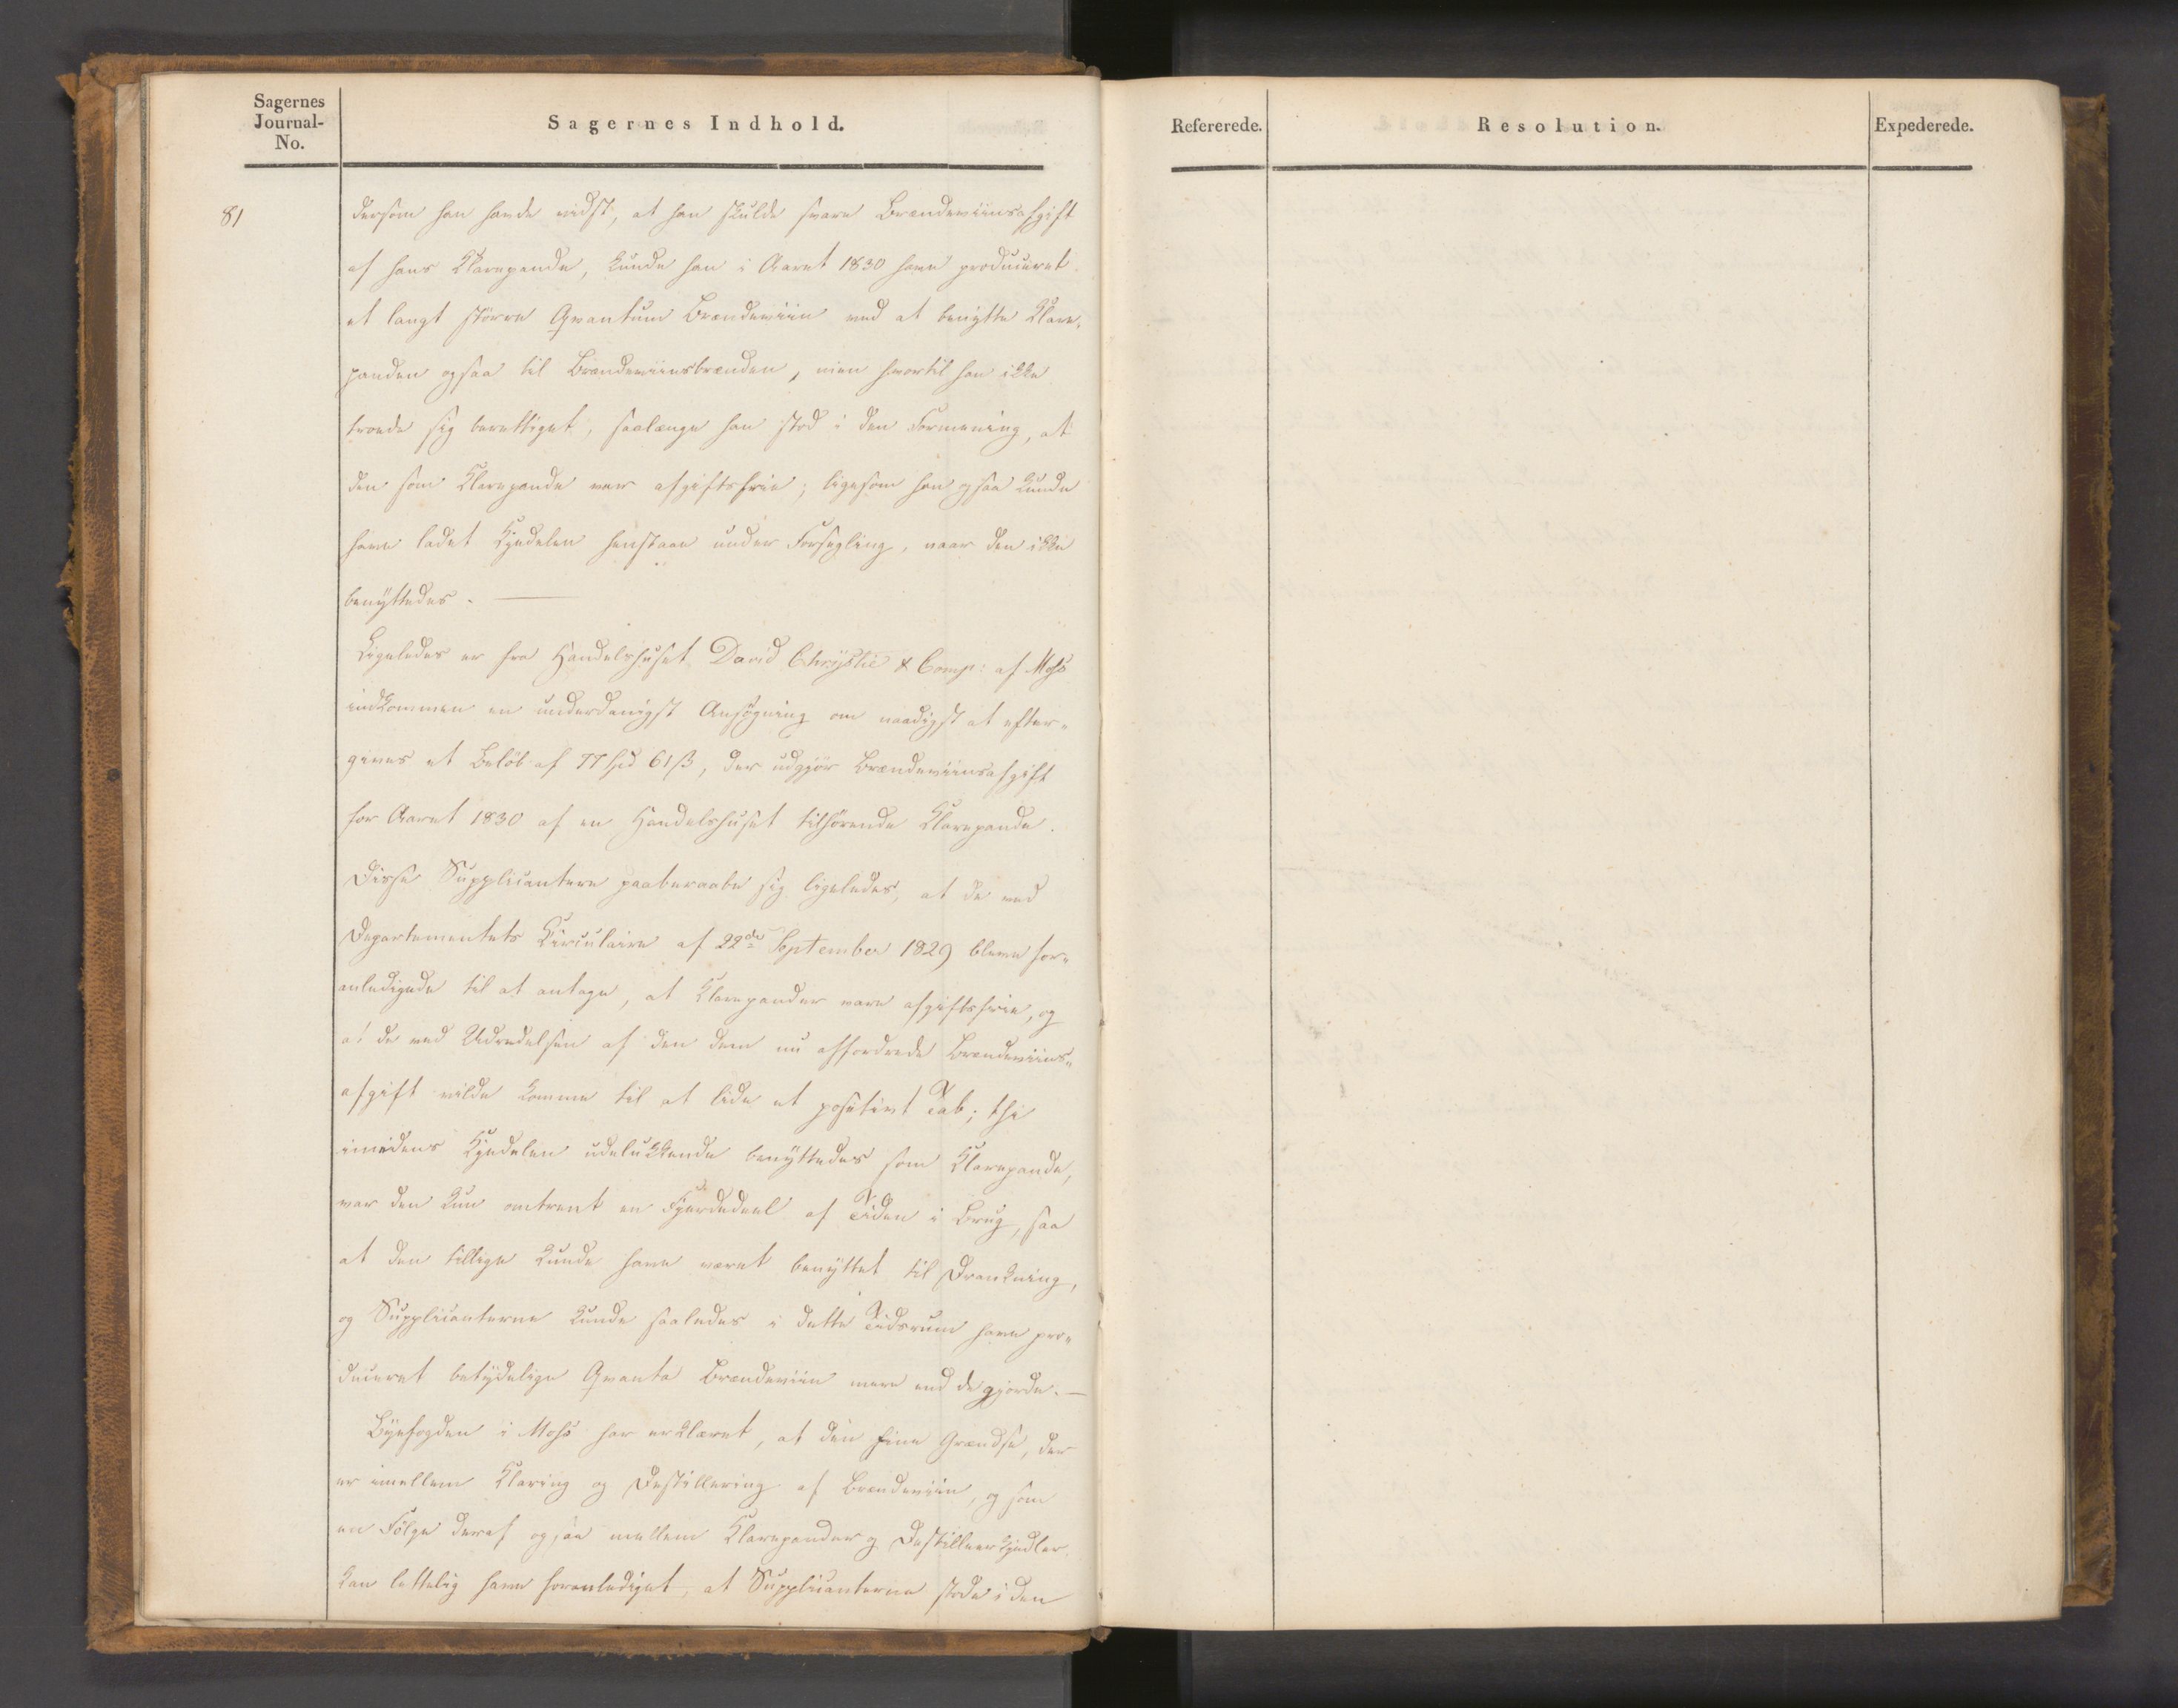 Sagernes
Journal-
No.
Sagernes Indhold.
81
dersom han havde vidst, at han skulde svare Brændeviinsafgift
af hans Klarepande, kunde han i Aaret 1830 have produceret
et langt større Qvantum Brændeviin ved at benytte Klare-
panden ogsaa til Brændeviinsbrænden, men hvortil han ikke
troede sig berettiget, saalænge han stod i den Formening, at
den som Klarepande var afgiftsfrie; ligesom han ogsaa kunde
have ladet Kjedelen henstaae under Forsegling, naar den ikke
benyttedes. —
Ligeledes er fra Handelshuset David Chrystie & Comp: af Moss
indkommen en underdanigst Ansøgning om naadigst at efter-
gives et Beløb af 77 Spd 61 ß, der udgjør Brændeviinsafgift
for Aaret 1830 af en Handelshuset tilhørende Klarepande.
Disse Supplicantere paaberaabe sig ligeledes, at de ved
Departementets Circulaire af 22de September 1829 bleve for-
anledigede til at antage, at Klarepander vare afgiftsfrie, og
at de ved Udredelsen af den dem nu affordrede Brændeviins-
afgift vilde komme til at lide et positivt Tab; thi
imedens Kjedelen udelukkende benyttedes som Klarepande,
var den kun omtrent en Fjerdedeel af Tiden i Brug, saa
at den tillige kunde have været benyttet til Drankning,
og Supplicanterne kunde saaledes i dette Tidsrum have pro-
duceret betydelige Qvanta Brændeviin mere end de gjorde. —
Byefogden i Moss har erklæret, at den fine Grændse, der
er imellem Klaring og Destillering af Brændeviin, og som
en Følge deraf ogsaa mellem Klarepander og Destilleerkjedler
kan lettelig have foranlediget, at Supplicanterne stode i den
Refererede.
Resolution.
Expederede.